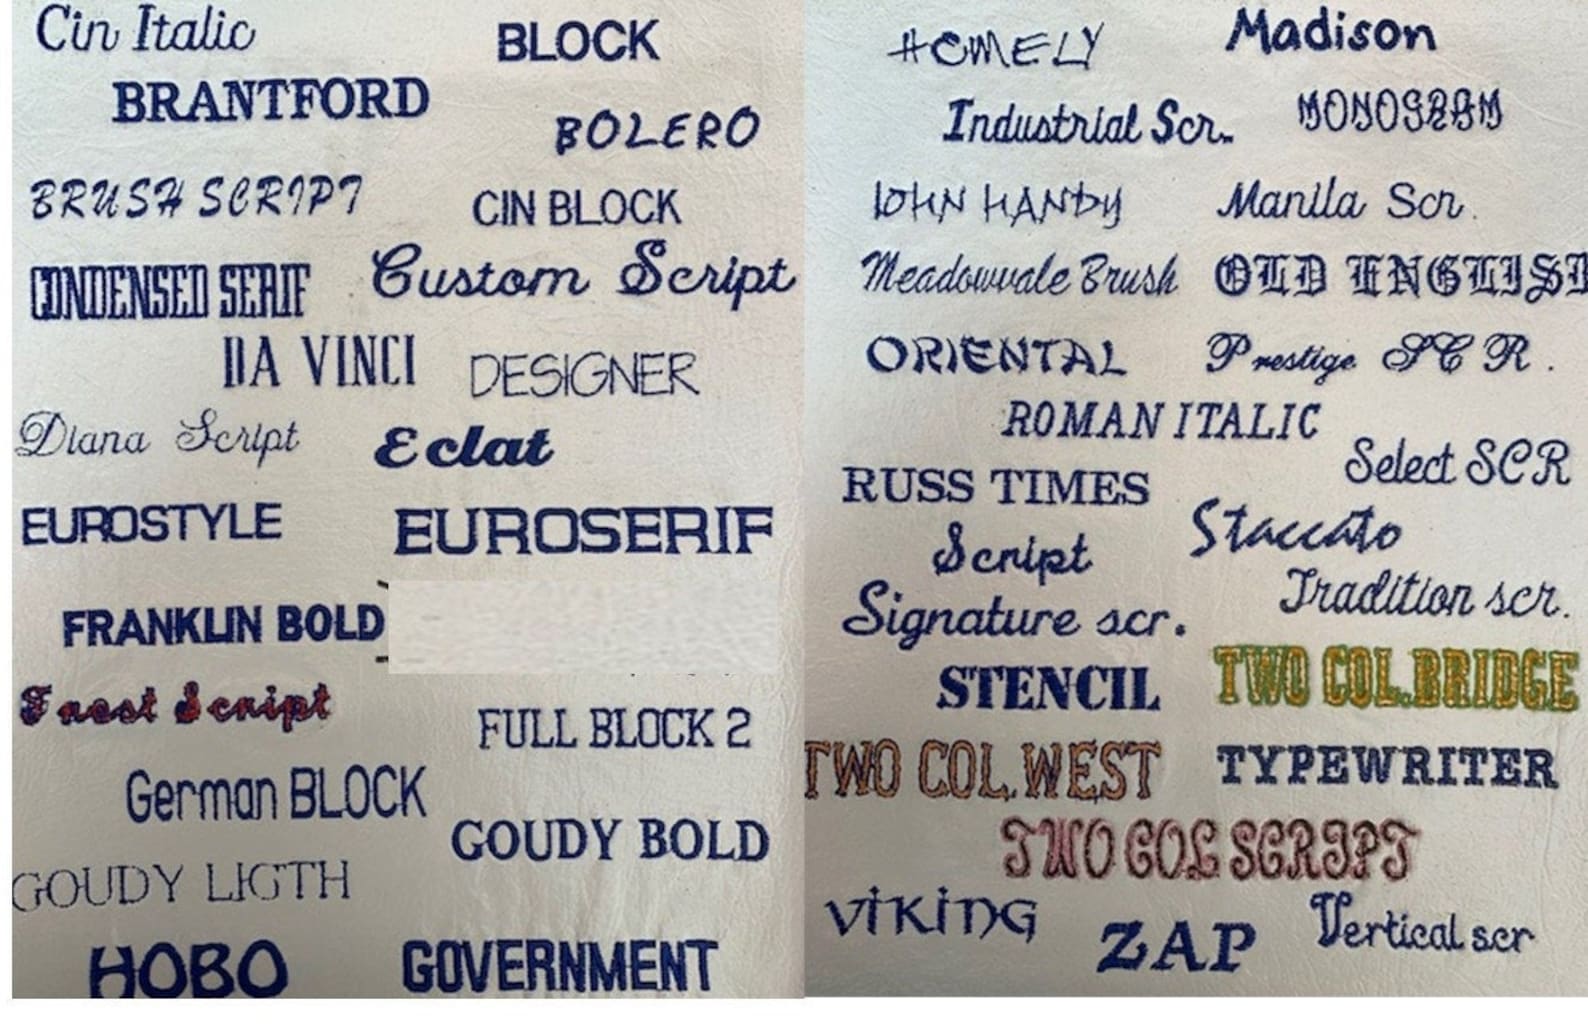 Cin Italic
BLOCK
BRANTFORD
BOLERO
BRUSH SCRIPT
CIN BLOCK
CONDENSED SERIF
Custom Script
DA VINCI
DESIGNER
Diana Script
Eclat
EUROSTYLE
EUROSERIF
FRANKLIN BOLD
Frost Script
FULL BLOCK 2
German BLOCK
GOUDY BOLD
GOUDY LIGTH
HOBO
GOVERNMENT
HOMELY
Madison
Industrial Scr.
MONOGRAM
JOHN HANDY
Manila Scr.
Meadowvale Brush
OLD ENGLISH
ORIENTAL
Prestige SCR.
ROMAN ITALIC
Select SCR
RUSS TIMES
Staccato
Script
Tradition scr.
Signature scr.
STENCIL
TWO COL.BRIDGE
TWO COL.WEST
TYPEWRITER
TWO COL SCRIPT
VIKING
ZAP
Vertical scr